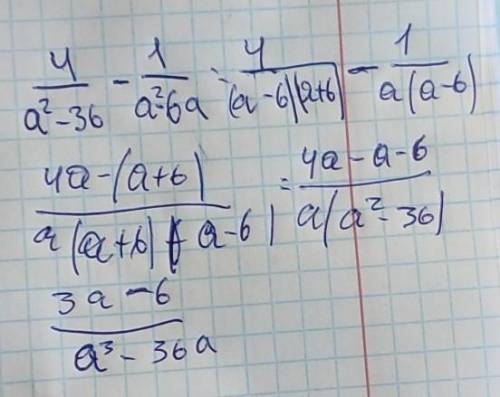 4/(a²-36) - 1/(a²-6a) = 4/((a-6)(a+6)) - 1/(a(a-6))
(4a-(a+6))/(a(a+6)(a-6)) = (4a-a-6)/(a(a²-36))
(3a-6)/(a³-36a)